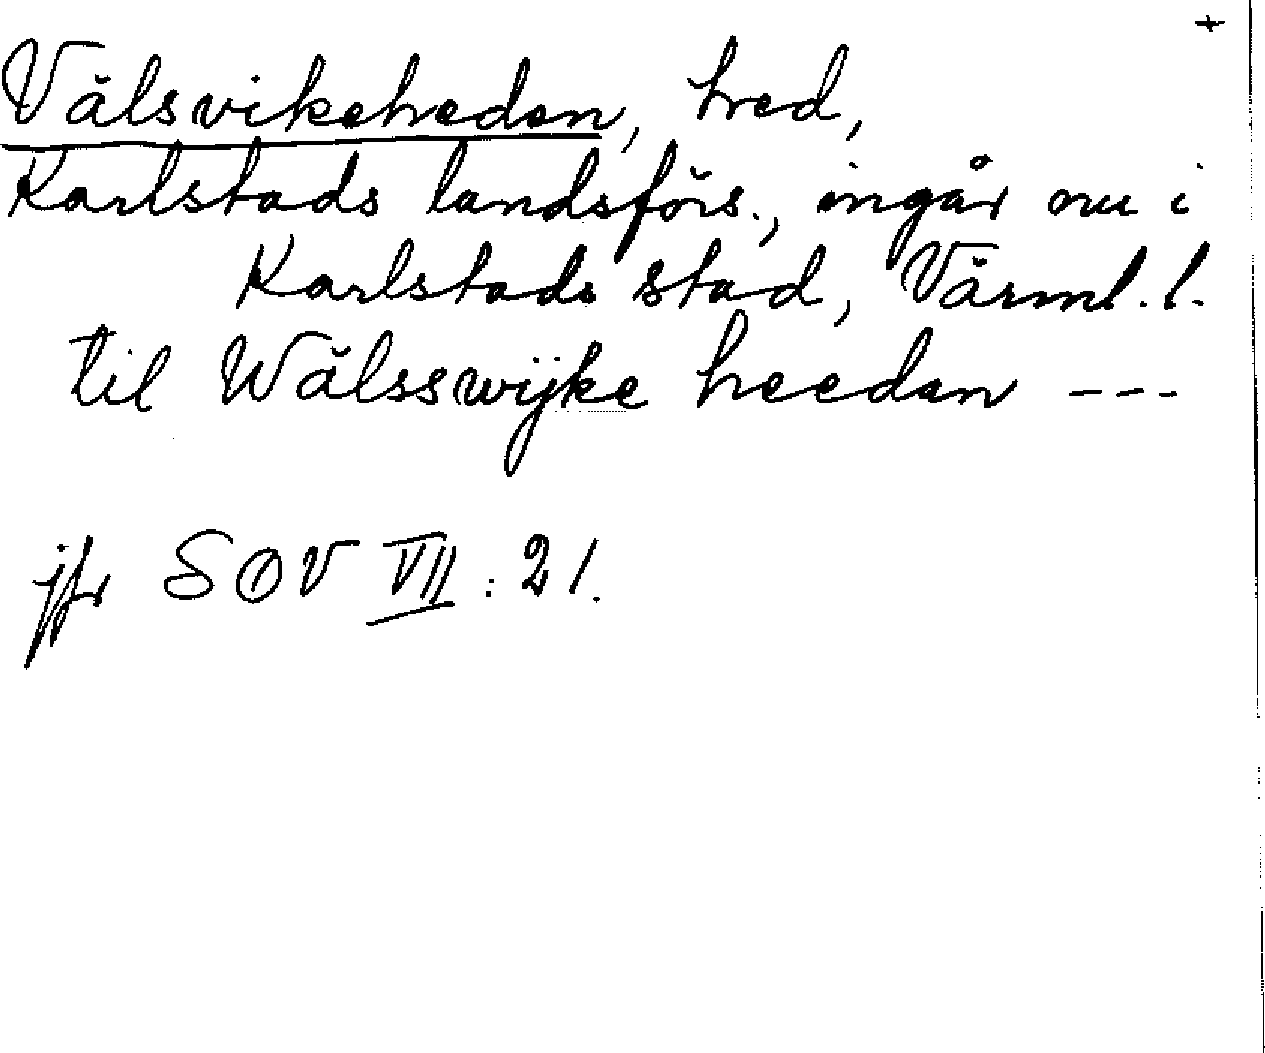 +
Välsvikeheden, hed,
Karlstads landsförs., ingår nu i
Karlstads stad, Värml. l.
til Wälsswijke heeden ---
jfr SOV VII : 21.